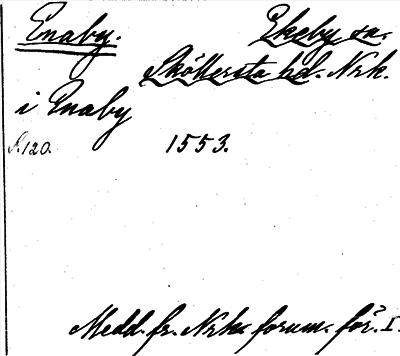 Enaby. Ekeby sn.
Sköllersta hd. Nrk.
i Enaby
S. 120. 1553.
Medd. fr. Nrks fornm.för. I.